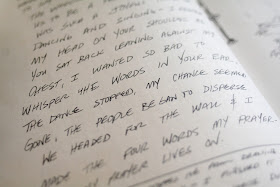 TO BE A
WAS SUCH A JOYFUL
DANCING AND SINGING - I
MY HEAD ON YOUR SHOULDER AS
YOU SAT BACK LEANING AGAINST MY
CHEST, I WANTED SO BAD TO
WHISPER THE WORDS IN YOUR EAR.
THE DANCE STOPPED, MY CHANCE SEEMED
GONE. THE PEOPLE BEGAN TO DISPERSE
WE HEADED FOR THE WALL & I
MADE THE FOUR WORDS MY PRAYER.
MY PRAYER LIVES ON.